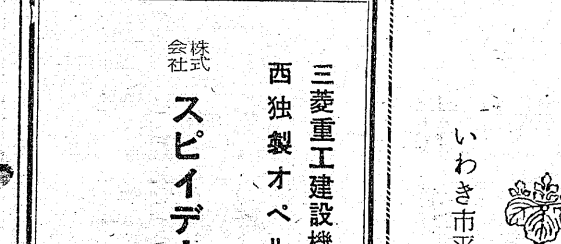 いわき市平
三菱重工建設機
西独製オペル
株式会社 スピイデ